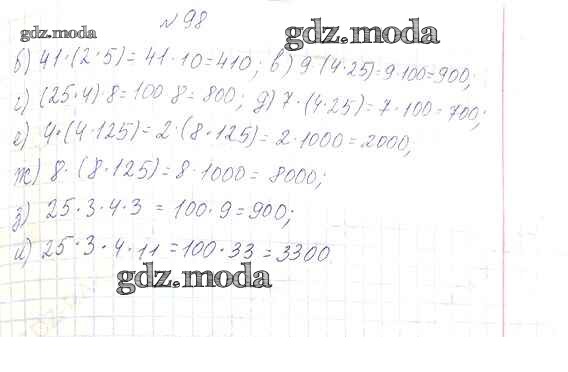 №98
gdz.moda gdz.moda
б) 41·(2·5)=41·10=410; в) 9·(4·25)=9·100=900;
г) (25·4)·8=100·8=800; д) 7·(4·25)=7·100=700;
е) 4·(4·125)=2·(8·125)=2·1000=2000;
ж) 8·(8·125)=8·1000=8000;
з) 25·3·4·3=100·9=900;
и) 25·3·4·11=100·33=3300
gdz.moda